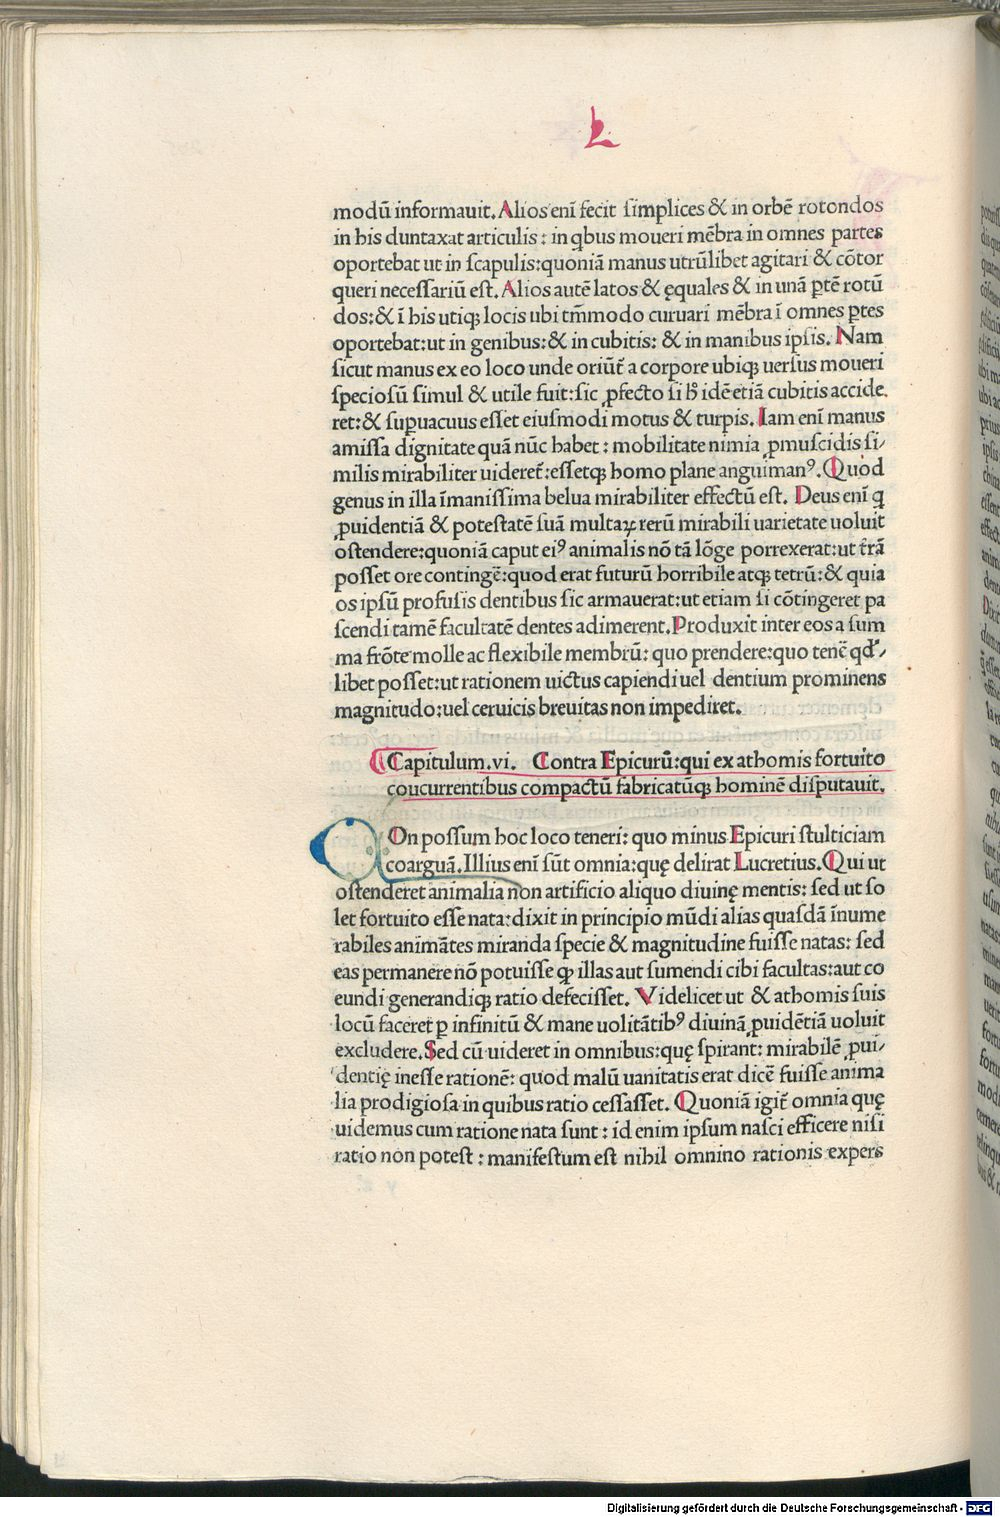 L
modū informauit. Alios enī fecit simplices & in orbē rotondos
in his duntaxat articulis: in qbus moueri mēbra in omnes partes
oportebat ut in scapulis: quoniā manus utrūlibet agitari & cōtor
queri necessariū est. Alios autē latos & ęquales & in unā ꝑtē rotū
dos: & ī his utiqꝫ locis ubi tm̄modo curuari mēbra ī omnes ꝑtes
oportebat: ut in genibus: & in cubitis: & in manibus ipsis. Nam
sicut manus ex eo loco unde oriūt̄ a corpore ubiqꝫ uersus moueri
speciosū simul & utile fuit: sic ꝓfecto si h̄ idē etiā cubitis accide.
ret: & suꝑuacuus esset eiusmodi motus & turpis. Iam enī manus
amissa dignitate quā nūc habet: mobilitate nimia ꝓmuscidis si/
milis mirabiliter uideret̄: essetqꝫ homo plane anguimanꝰ. Quod
genus in illa īmanissima belua mirabiliter effectū est. Deus enī q
ꝓuidentiā & potestatē suā multaꝝ rerū mirabili uarietate uoluit
ostendere: quoniā caput eiꝰ animalis nō tā lōge porrexerat: ut t̄rā
posset ore continge̅: quod erat futurū horribile atqꝫ tetrū: & quia
os ipsū profusis dentibus sic armauerat: ut etiam si cōtingeret pa
scendi tamē facultatē dentes adimerent. Produxit inter eos a sum
ma frōte molle ac flexibile membrū: quo prendere: quo tene̅ qd'/
libet posset: ut rationem uictus capiendi uel dentium prominens
magnitudo: uel ceruicis breuitas non impediret.
Capitulum .vi. Contra Epicurū: qui ex athomis fortuito
coucurrentibus compactū fabricatūqꝫ hominē disputauit.
On possum hoc loco teneri: quo minus Epicuri stulticiam
coarguā. Illius enī sūt omnia: quę delirat Lucretius. Qui ut
ostenderet animalia non artificio aliquo diuinę mentis: sed ut so
let fortuito esse nata: dixit in principio mūdi alias quasdā īnume
rabiles animātes miranda specie & magnitudine fuisse natas: sed
eas permanere nō potuisse ꝙ illas aut sumendi cibi facultas: aut co
eundi generandiqꝫ ratio defecisset. Videlicet ut & athomis suis
locū faceret ꝑ infinitū & mane uolitātibꝰ diuinā ꝓuidētiā uoluit
excludere. Sed cū uideret in omnibus: quę spirant: mirabilē ꝓui/
dentię inesse rationē: quod malū uanitatis erat dice̅ fuisse anima
lia prodigiosa in quibus ratio cessasset. Quoniā igit̄ omnia quę
uidemus cum ratione nata sunt: id enim ipsum nasci efficere nisi
ratio non potest: manifestum est nihil omnino rationis expers
Digitalisierung gefördert durch die Deutsche Forschungsgemeinschaft - DFG